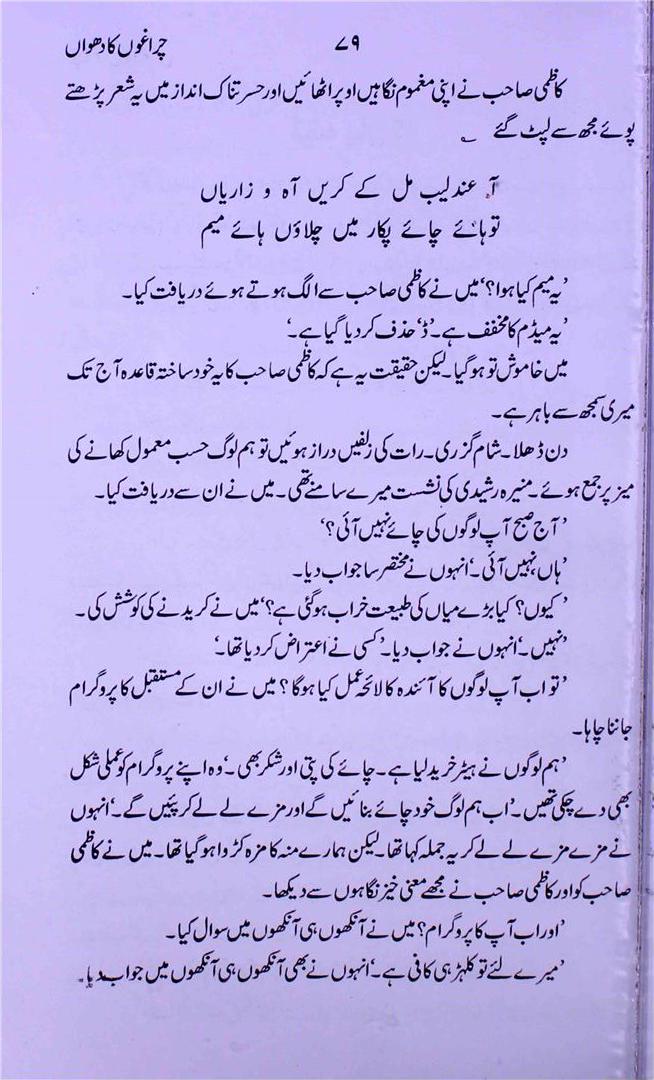 چراغوں کا دھواں ۷۹
کاظمی صاحب نے اپنی مغموم نگاہیں اوپر اٹھائیں اور حسرتناک انداز میں یہ شعر پڑھتے
ہوئے مجھ سے لپٹ گئے ؎
آ عندلیب مل کے کریں آہ و زاریاں
تو ہائے چائے پکار میں چلاؤں ہائے میم
'یہ میم کیا ہوا؟' میں نے کاظمی صاحب سے الگ ہوتے ہوئے دریافت کیا۔
'یہ میڈم کا مخفف ہے۔ 'ڈ' حذف کر دیا گیا ہے۔'
میں خاموش تو ہو گیا۔ لیکن حقیقت یہ ہے کہ کاظمی صاحب کا یہ خود ساختہ قاعدہ آج تک
میری سمجھ سے باہر ہے۔
دن ڈھلا۔ شام گزری۔ رات کی زلفیں دراز ہوئیں تو ہم لوگ حسب معمول کھانے کی
میز پر جمع ہوئے۔ منیرہ رشیدی کی نشست میرے سامنے تھی۔ میں نے ان سے دریافت کیا۔
'آج صبح آپ لوگوں کی چائے نہیں آئی؟'
'ہاں نہیں آئی۔' انہوں نے مختصر سا جواب دیا۔
'کیوں؟ کیا بڑے میاں کی طبیعت خراب ہو گئی ہے؟' میں نے کریدنے کی کوشش کی۔
'نہیں۔' انہوں نے جواب دیا۔ 'کسی نے اعتراض کر دیا تھا۔'
'تو اب آپ لوگوں کا آئندہ کا لائحہ عمل کیا ہوگا؟ میں نے ان کے مستقبل کا پروگرام
جاننا چاہا۔
'ہم لوگوں نے ہیٹر خرید لیا ہے۔ چائے کی پتی اور شکر بھی۔' وہ اپنے پروگرام کو عملی شکل
بھی دے چکی تھیں۔ 'اب ہم لوگ خود چائے بنائیں گے اور مزے لے لے کر پئیں گے۔' انہوں
نے مزے مزے لے لے کر یہ جملہ کہا تھا۔ لیکن ہمارے منہ کا مزہ کڑوا ہو گیا تھا۔ میں نے کاظمی
صاحب کو اور کاظمی صاحب نے مجھے معنی خیز نگاہوں سے دیکھا۔
'اور اب آپ کا پروگرام؟ میں نے آنکھوں ہی آنکھوں میں سوال کیا۔
'میرے لئے تو کلہڑ ہی کافی ہے۔' انہوں نے بھی آنکھوں ہی آنکھوں میں جواب دیا۔